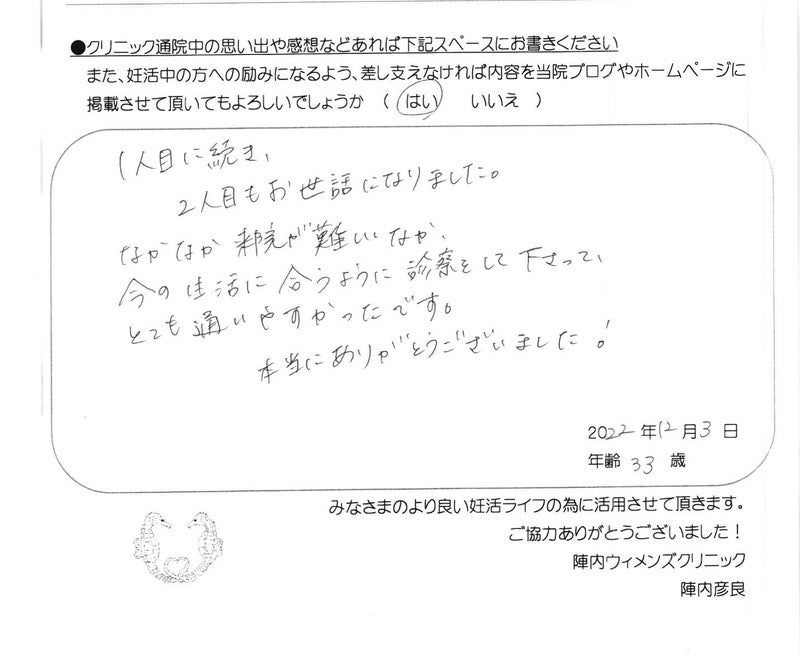 ●クリニック通院中の思い出や感想などあれば下記スペースにお書きください
また、妊活中の方への励みになるよう、差し支えなければ内容を当院ブログやホームページに
掲載させて頂いてもよろしいでしょうか （ はい いいえ ）
1人目に続き、
2人目もお世話になりました。
なかなか来院が難しいなか、
今の生活に合うように診察をして下さって、
とても通いやすかったです。
本当にありがとうございました!
2022年12月3日
年齢 33 歳
みなさまのより良い妊活ライフの為に活用させて頂きます。
ご協力ありがとうございました！
陣内ウィメンズクリニック
陣内彦良